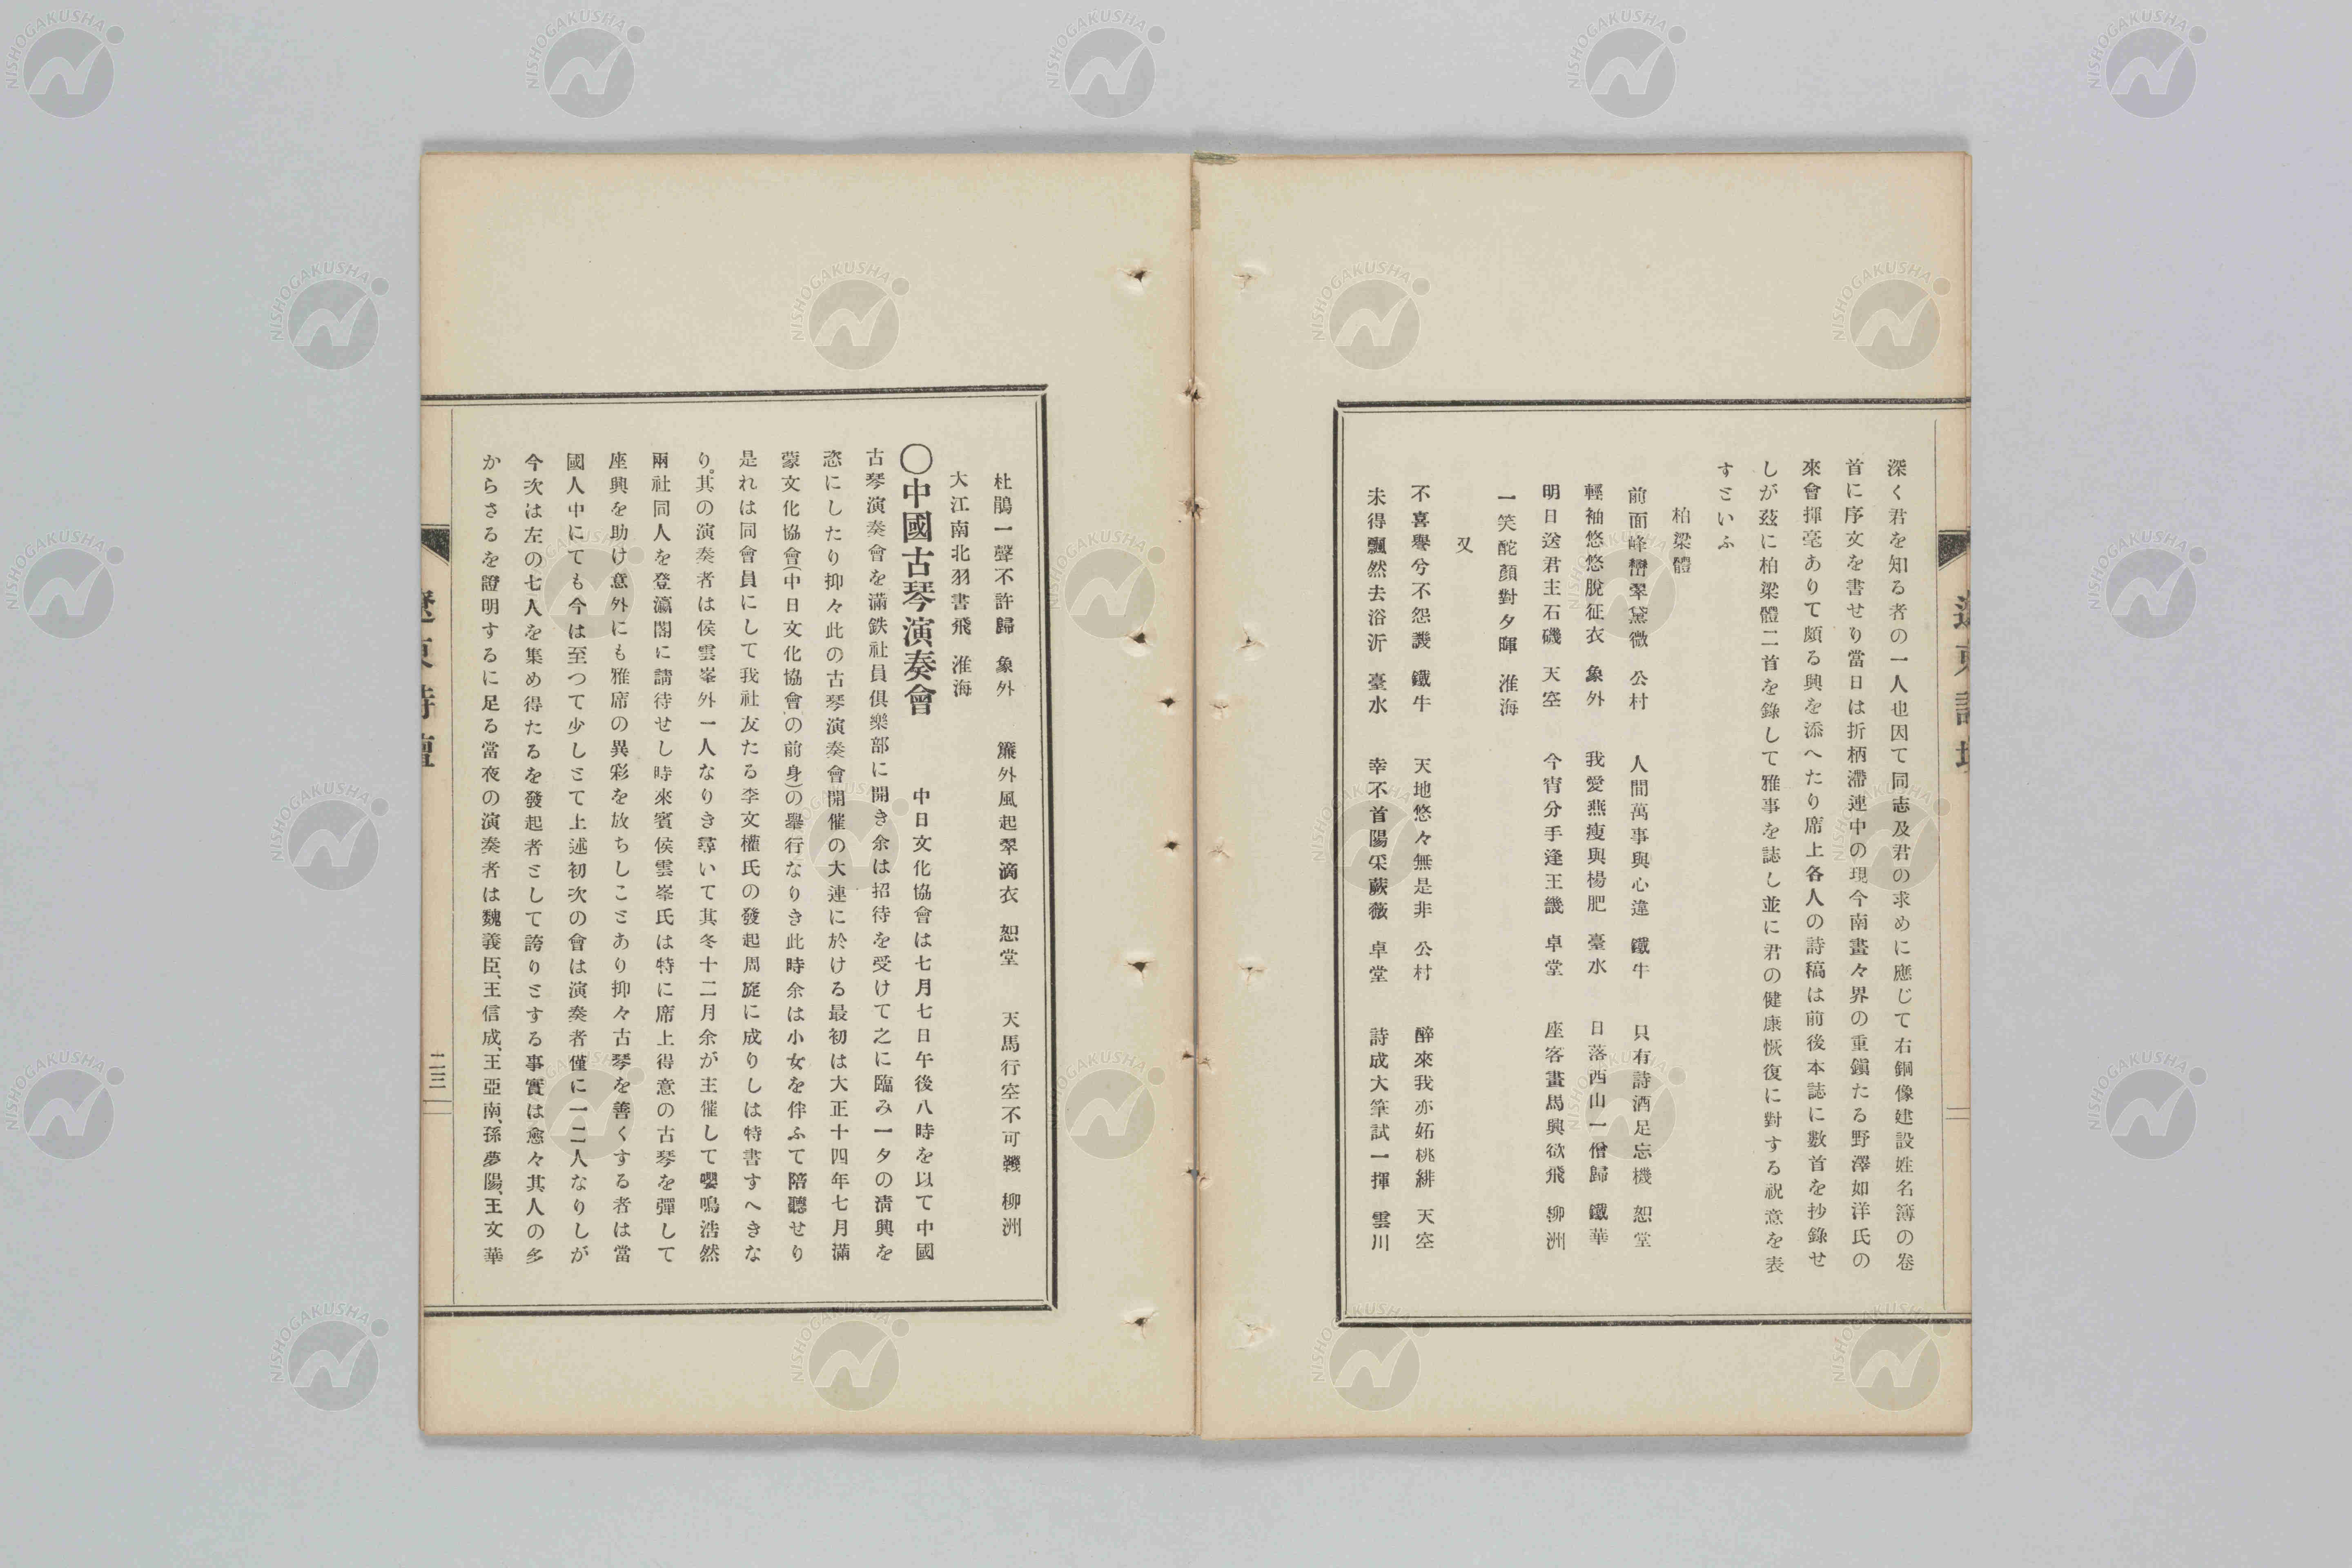 深く君を知る者の一人也因て同志及君の求めに應じて右銅像建設姓名簿の卷
首に序文を書せり當日は折柄滯連中の現今南畫々界の重鎭たる野澤如洋氏の
來會揮毫ありて頗る興を添へたり席上各人の詩稿は前後本誌に數首を抄錄せ
しが玆に柏梁體二首を錄して雅事を誌し並に君の健康恢復に對する祝意を表
すといふ
柏梁體
前面峰巒翠黛微 公村 人間萬事與心違 鐵牛 只有詩酒足忘機 恕堂
輕袖悠悠脫征衣 象外 我愛燕瘦與楊肥 臺水 日落西山一僧歸 鐵華
明日送君主石磯 天空 今宵分手逢王畿 卓堂 座客畫馬興欲飛 柳洲
一笑酡顏對夕暉 淮海
又
不喜譽兮不怨譏 鐵牛 天地悠々無是非 公村 醉來我亦妬桃緋 天空
未得飄然去浴沂 臺水 幸不首陽采蕨薇 卓堂 詩成大筆試一揮 雲川
杜鵑一聲不許歸 象外 簾外風起翠滴衣 恕堂 天馬行空不可鞿 柳洲
大江南北羽書飛 淮海
〇中國古琴演奏會 中日文化協會は七月七日午後八時を以て中國
古琴演奏會を滿鉄社員俱樂部に開き余は招待を受けて之に臨み一夕の淸興を
恣にしたり抑々此の古琴演奏會開催の大連に於ける最初は大正十四年七月滿
蒙文化協會(中日文化協會の前身)の擧行なりき此時余は小女を伴ふて陪聽せり
是れは同會員にして我社友たる李文權氏の發起周旋に成りしは特書すへきな
り。其の演奏者は侯雲峯外一人なりき尋いて其冬十二月余が主催して嚶鳴浩然
兩社同人を登瀛閣に請待せし時來賓侯雲峯氏は特に席上得意の古琴を彈して
座興を助け意外にも雅席の異彩を放ちしことあり抑々古琴を善くする者は當
國人中にても今は至つて少しとて上述初次の會は演奏者僅に一二人なりしが
今次は左の七人を集め得たるを發起者として誇りとする事實は愈々其人の多
からさるを證明するに足る當夜の演奏者は魏義臣、王信成、王亞南、孫夢陽、王文華
遼東詩壇
二三